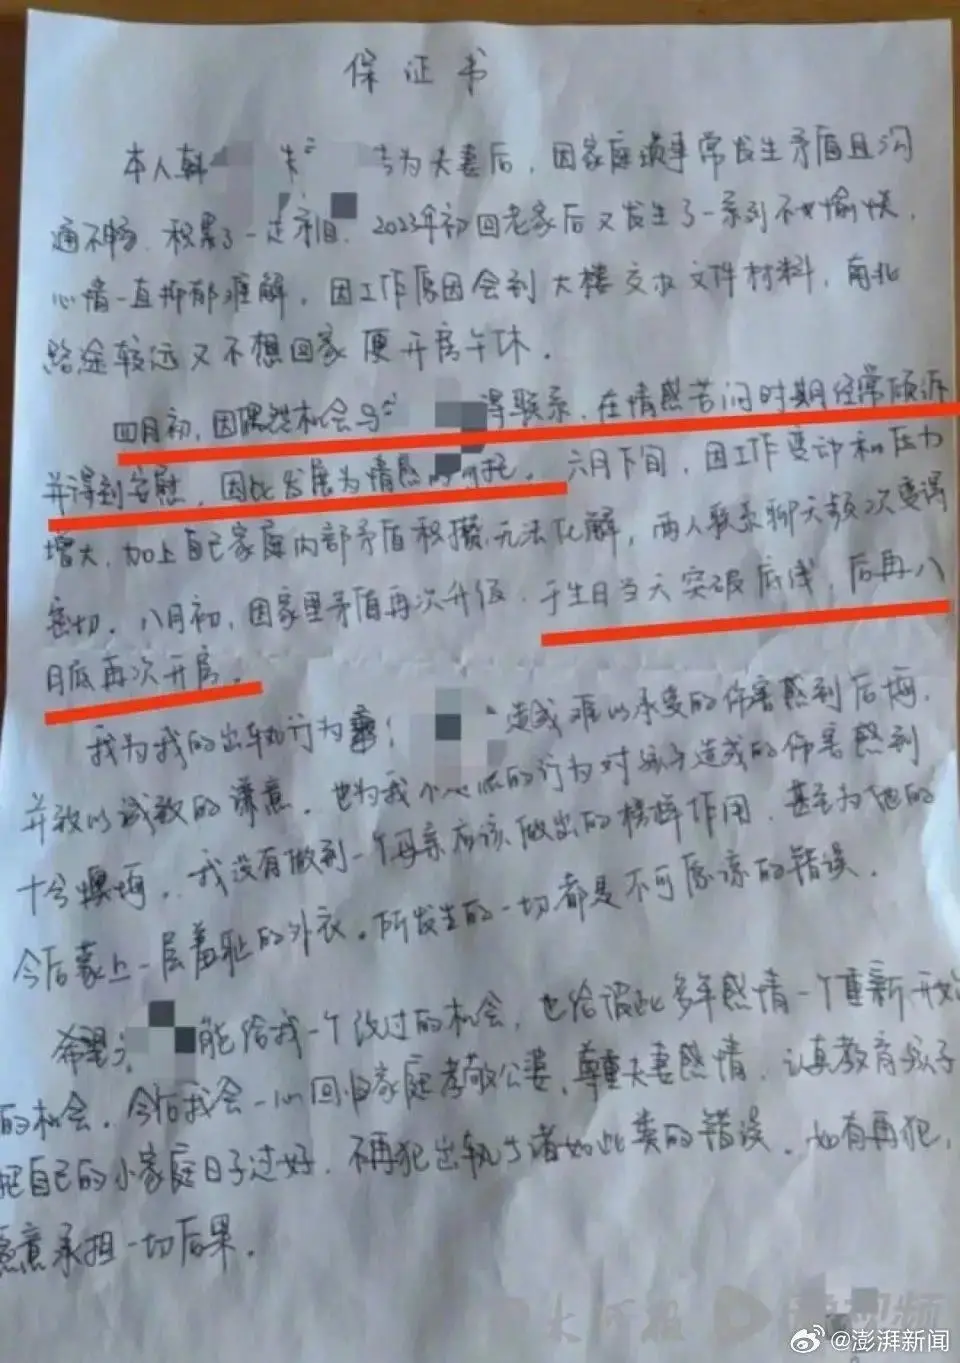 保证书
本人韩 为夫妻后，因家庭琐事常发生矛盾且沟
通不畅，积累了一 2023年初回老家后又发生了一系列不愉快，
心情一直抑郁难解，因工作原因会到大楼交收文件材料，南北
路途较远又不想回家便开房午休。
四月初，因偶然机会与 得联系，在情感苦闷时期经常倾诉
并得到安慰，因此发展为情感的 托。六月下旬，因工作变动和压力
增大，加上自己家庭内部矛盾积攒无法化解，两人联系聊天频次变得
密切。八月初，因家里矛盾再次升级，于生日当天突破底线，后再八
月底再次开房。
我为我的出轨行为 造成难以承受的伤害感到后悔，
并致以诚致的谦意，也为我 的行为对孩子造成的伤害感到
十分懊悔，我没有做到一个母亲应该做出的榜样作用，甚至为他的
今后蒙上一层羞耻的外衣。所发生的一切都是不可原谅的错误。
希望 能给我一个改过的机会，也给彼此多年感情一个重新开始
的机会，今后我会一心回归家庭孝敬公婆，尊重夫妻感情，认真教育孩子
把自己的小家庭日子过好，不再犯出轨诸如此类的错误，如有再犯，
愿意承担一切后果。
大河报
视频
@澎湃新闻